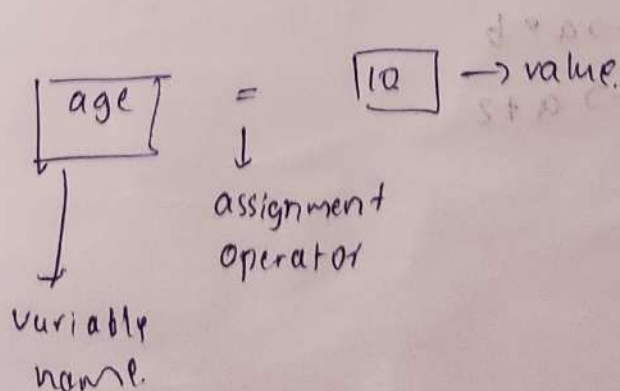 age = 10 → value.
assignment
operator
variable
name.